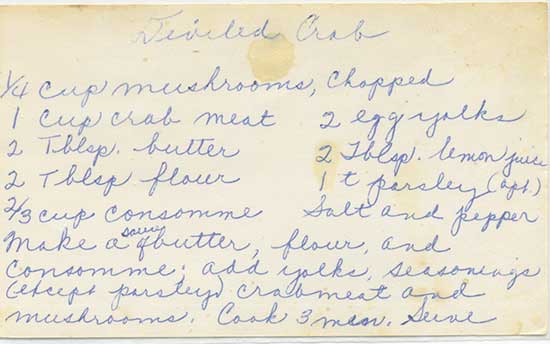 Deviled Crab
1/4 cup mushrooms, chopped
1 cup crab meat 2 egg yolks
2 Tblsp. butter 2 Tblsp. lemon juice
2 Tblsp flour 1 t parsley (opt)
2/3 cup consomme Salt and pepper
Make a sauce of butter, flour, and
consomme; add yolks, seasonings
(except parsley) crabmeat and
mushrooms. Cook 3 min. Serve